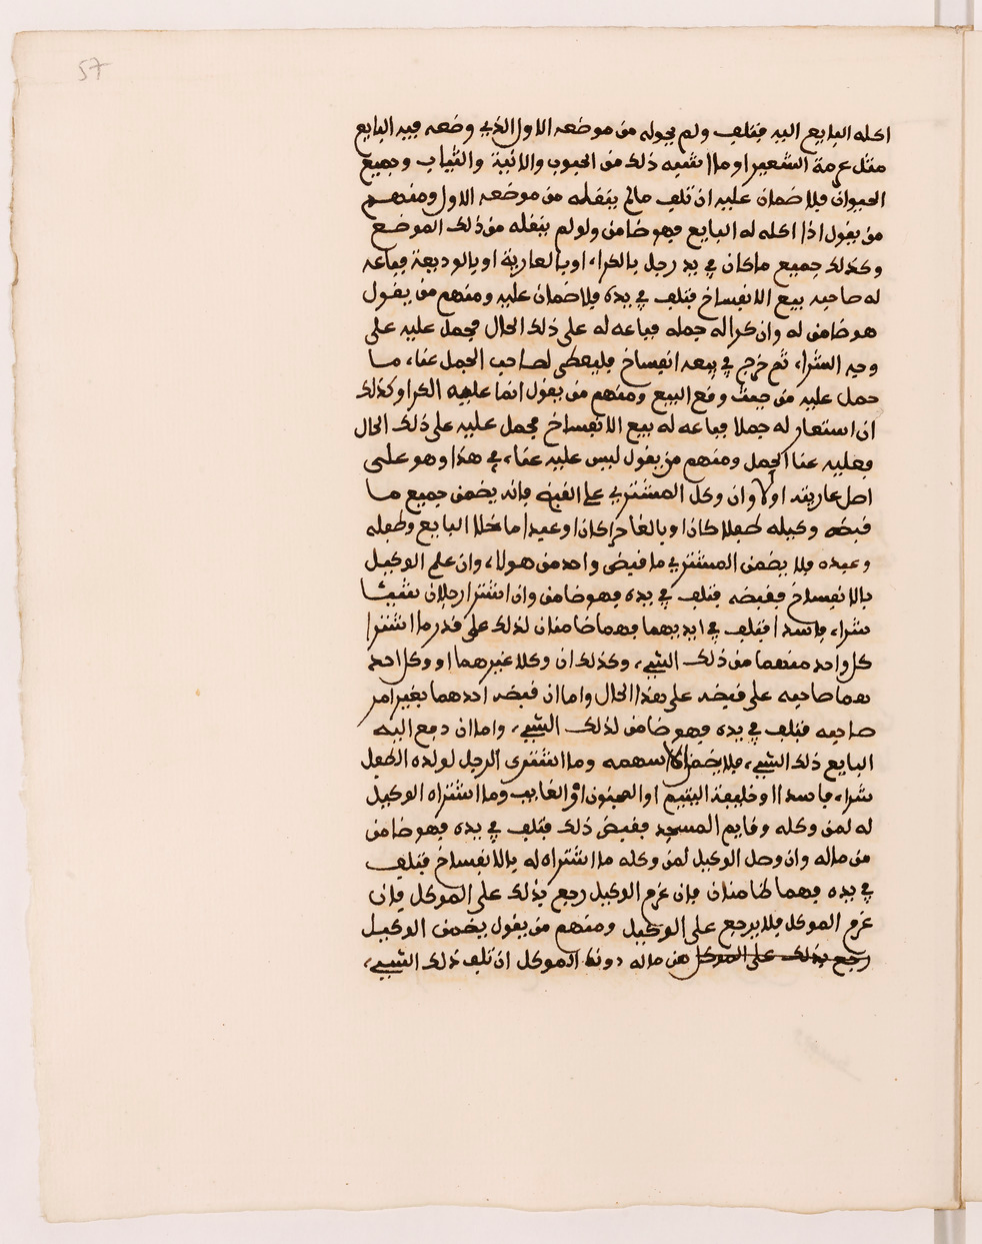 57
اكله البايع اليه فتلف ولم يحوله من موضعه الاول الذي وضعه فيه البايع
مثل عرمة الشعير او ما اشبه ذلك من الحبوب والانية والثياب وجميع
الحيوان فلا ضمان عليه ان تلف مالم ينقله من موضعه الاول ومنهم
من يقول اذا اكله له البايع فهو ضامن ولو لم ينقله من ذلك الموضع
وكذلك جميع ما كان في يد رجل بالكراء او بالعارية او بالوديعة فباعه
له صاحبه بيع الانفساخ فتلف في يده فلا ضمان عليه ومنهم من يقول
هو ضامن له وان كرا له جمله فباعه له على ذلك الحال فحمل عليه على
وجه الشراء ثم خرج في بيعه انفساخ فليعطي لصاحب الجمل عناء ما
حمل عليه من حيث وقع البيع ومنهم من يقول انما عليه الكرا وكذلك
ان استعار له جملا فباعه له بيع الانفساخ فحمل عليه على ذلك الحال
فعليه عنا الجمل ومنهم من يقول ليس عليه عناء في هذا وهو على
اصل عاريته اولا وان وكل المشتري على القبض فانه يضمن جميع ما
قبضه وكيله طفلا كان او بالغا حرا كان او عبدا ما خلا البايع وطفله
وعبده فلا يضمن المشتري ما قبض واحد من هولاء وان علم الوكيل
بالانفساخ فقبضه فتلف في يده فهو ضامن وان اشترا رجلان شيئا
شراء فاسدا فتلف في ايديهما فهما ضامنان لذلك على قدر ما اشترا
كل واحد منهما من ذلك الشيء وكذلك ان وكلا غيرهما او وكل احد
هما صاحبه على قبضه على هذا الحال واما ان قبضه احدهما بغير امر
صاحبه فتلف في يده فهو ضامن لذلك الشيء واما ان دفع اليه
البايع ذلك الشيء فلا يضمن الا سهمه وما اشترى الرجل لولده الطفل
شراء فاسدا او خليفة اليتيم او المجنون او الغايب وما اشتراه الوكيل
له لمن وكله وقايم المسجد فقبض ذلك فتلف في يده فهو ضامن
من ماله وان وصل الوكيل لمن وكله ما اشتراه له بالانفساخ فتلف
في يده فهما ضامنان فان غرم الوكيل رجع بذلك على الموكل فان
غرم الموكل فلا يرجع على الوكيل ومنهم من يقول يضمن الوكيل
رجع بذلك على الموكل من ماله دون الموكل ان تلف ذلك الشيء